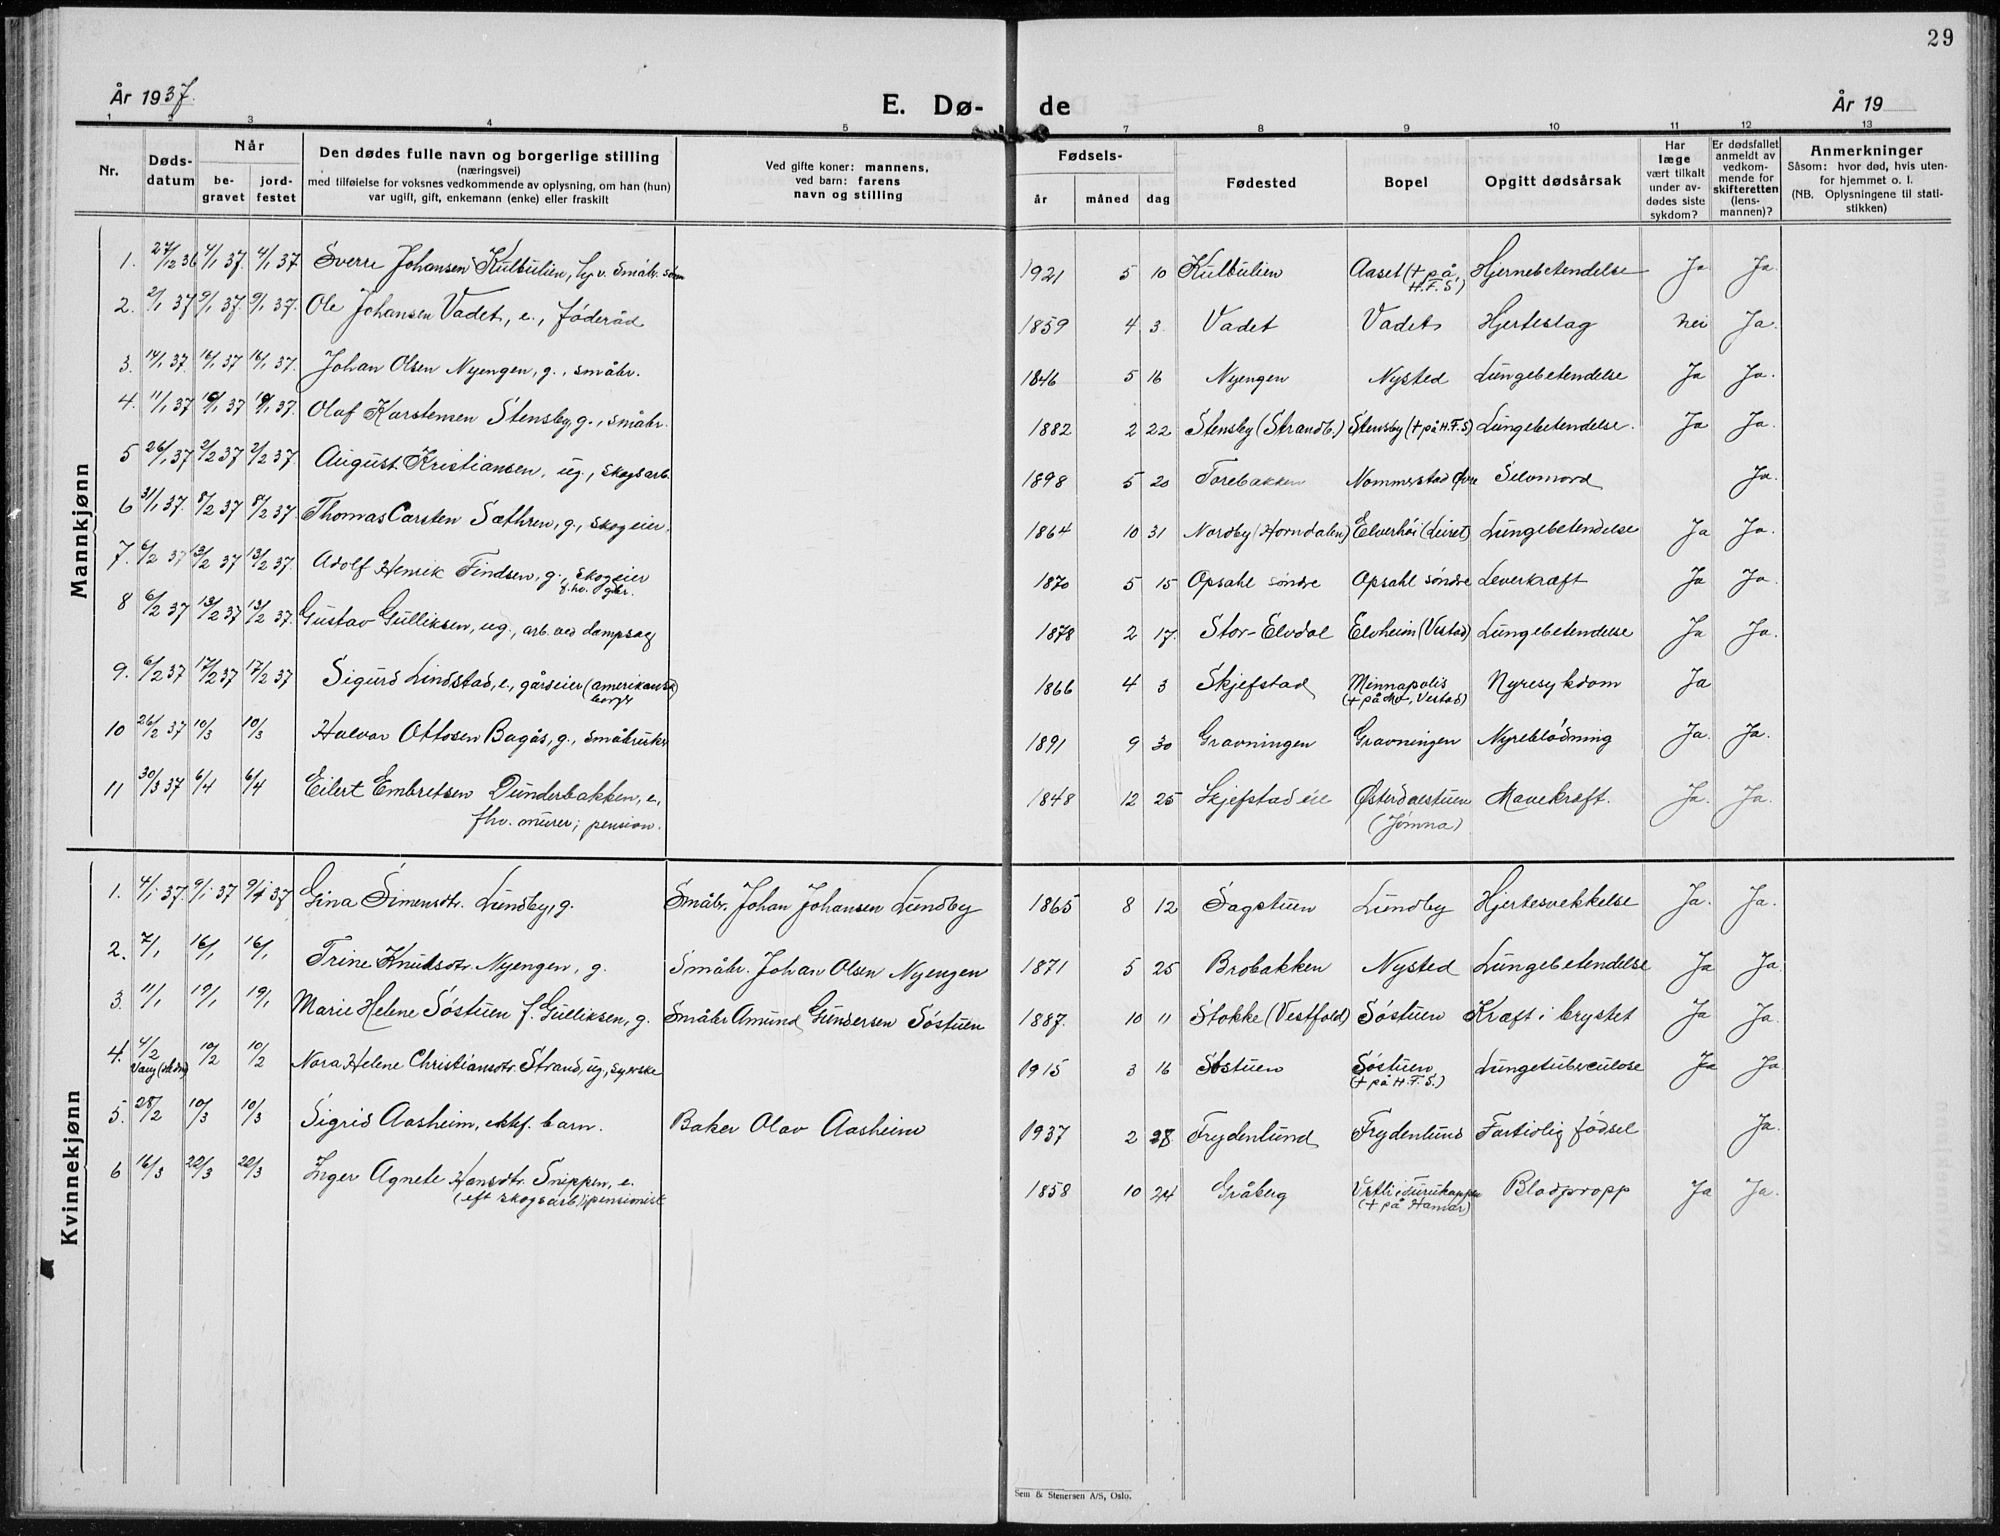 29
År 1937.
E. Dø- de
År 19
1 2 3 4 5 7 8 9 10 11 12 13
Nr.
Døds-
datum
Når
be-
gravet
jord-
festet
Den dødes fulle navn og borgerlige stilling
(næringsvei)
med tilføielse for voksnes vedkommende av oplysning, om han (hun)
var ugift, gift, enkemann (enke) eller fraskilt
Ved gifte koner: mannens,
ved barn: farens
navn og stilling
Fødsels-
år måned dag
Fødested
Bopel
Opgitt dødsårsak
Har
læge
vært tilkalt
under av-
dødes siste
sykdom?
Er dødsfallet
anmeldt av
vedkom-
mende for
skifteretten
(lens-
mannen)?
Anmerkninger
Såsom: hvor død, hvis uten-
for hjemmet o. l.
(NB. Oplysningene til stati-
stikken)
Mannkjønn
1. 27/12 36 4/1 37. 4/1 37 Sverre Johansen Kulbulien, hj. v. Småbr. søn 1921 5 10 Kulbulien Aaset (+ på H.F.S) Hjernebetendelse Ja Ja.
2. 2/1 37 9/1 37. 9/1 37. Ole Johansen Vadet, e., føderåd 1859 4 3. Vadet Vadet Hjerteslag nei Ja.
3. 14/1 37. 16/1 37 16/1 37. Johan Olsen Nyengen, g., småbr. 1846 5 16 Nyengen Nysted Lungebetendelse Ja Ja.
4. 11/1 37 19/1 37 19/1 37. Olaf Karstensen Stensby, g., småbr. 1882 2 22 Stensby (Strandb.) Stensby (+ på H.F.S) Lungebetendelse. Ja Ja.
5 26/1 37 2/2 37 2/2 37. August Kristiansen, ug., skogsarb. 1898 5 20 Torebakken Nommerstad Øvre Selvmord Ja.
6 31/1 37. 8/2 37 8/2 37. Thomas Carsten Sæthren, g., skogeier. 1864 10 31 Nordby (Horndalen) Elverhöi (Leiret) Lungebetendelse Ja Ja.
7. 6/2 37 13/2 37 13/2 37. Adolf Henrik Findsen, g., skogeier
f.hv. gbr. 1870 5 15 Opsahl søndre Opsahl søndre Leverkræft Ja Ja.
8 6/2 37 13/2 37 13/2 37. Gustav Gulliksen, ug., arb. ved dampsag 1878 2 17. Stor-Elvdal Elvheim (Vestad) Lungebetendelse Ja Ja.
9. 6/2 37 17/2 37 17/2 37 Sigurd Lindstad, e., gårdeier (amerikansk
borger 1866 4 3 Skjefstad Minnapolis
(+ på Mo, Vestad) Nyresykdom Ja
10 26/2 37 10/3 10/3 Halvor Ottosen Bagås, g., småbruker 1891 9 30 Gravningen Gravningen Nyreblødning Ja. Ja.
11 30/3 37 6/4 6/4 Eilert Embretsen Dunderbakken, e,
fhv. murer; pension. 1848 12 25 Skjefstad eie Østerdalstuen
(Jømna) Mavekræft. Ja. Ja.
Kvinnekjønn
1. 4/1 37. 9/1 37 9/1 37 Gina Simensdtr. Lundby, g. Småbr. Johan Johansen Lundby 1865 8 12 Sagstuen Lundby Hjertesvekkelse Ja. Ja.
2. 7/1 16/1 16/1 Trine Knudsdtr. Nyengen, g. Småbr. Johan Olsen Nyengen 1871 5 25 Brobakken Nysted Lungebetendelse Ja Ja
3. 11/1 19/1 19/1 Marie Helene Søstuen f. Gulliksen, g. Småbr Amund Gundersen Søstuen 1887. 10 11 Stokke (Vestfold) Søstuen Kræft i brystet Ja Ja.
4. 4/2 10/2 10/2 Nora Helene Christiansdtr. Strand, ug, syerske 1915 3 16 Søstuen Søstuen
(+ på H.F.S.) Lungetuberculose Ja Ja
5. 28/2 10/3 10/3 Sigrid Aasheim, ektf. barn. Baker Olav Aasheim 1937 2 28 Frydenlund Frydenlund Fortidlig fødsel Ja.
6 16/3 22/3 22/3 Inger Agnete Hansdtr. Snippen, e.
(eft skogsarb) pensionist 1858 10 24 Gråberg
(+ på Hamar) Blodpropp Ja Ja.
Sem & Stenersen A/S, Oslo.